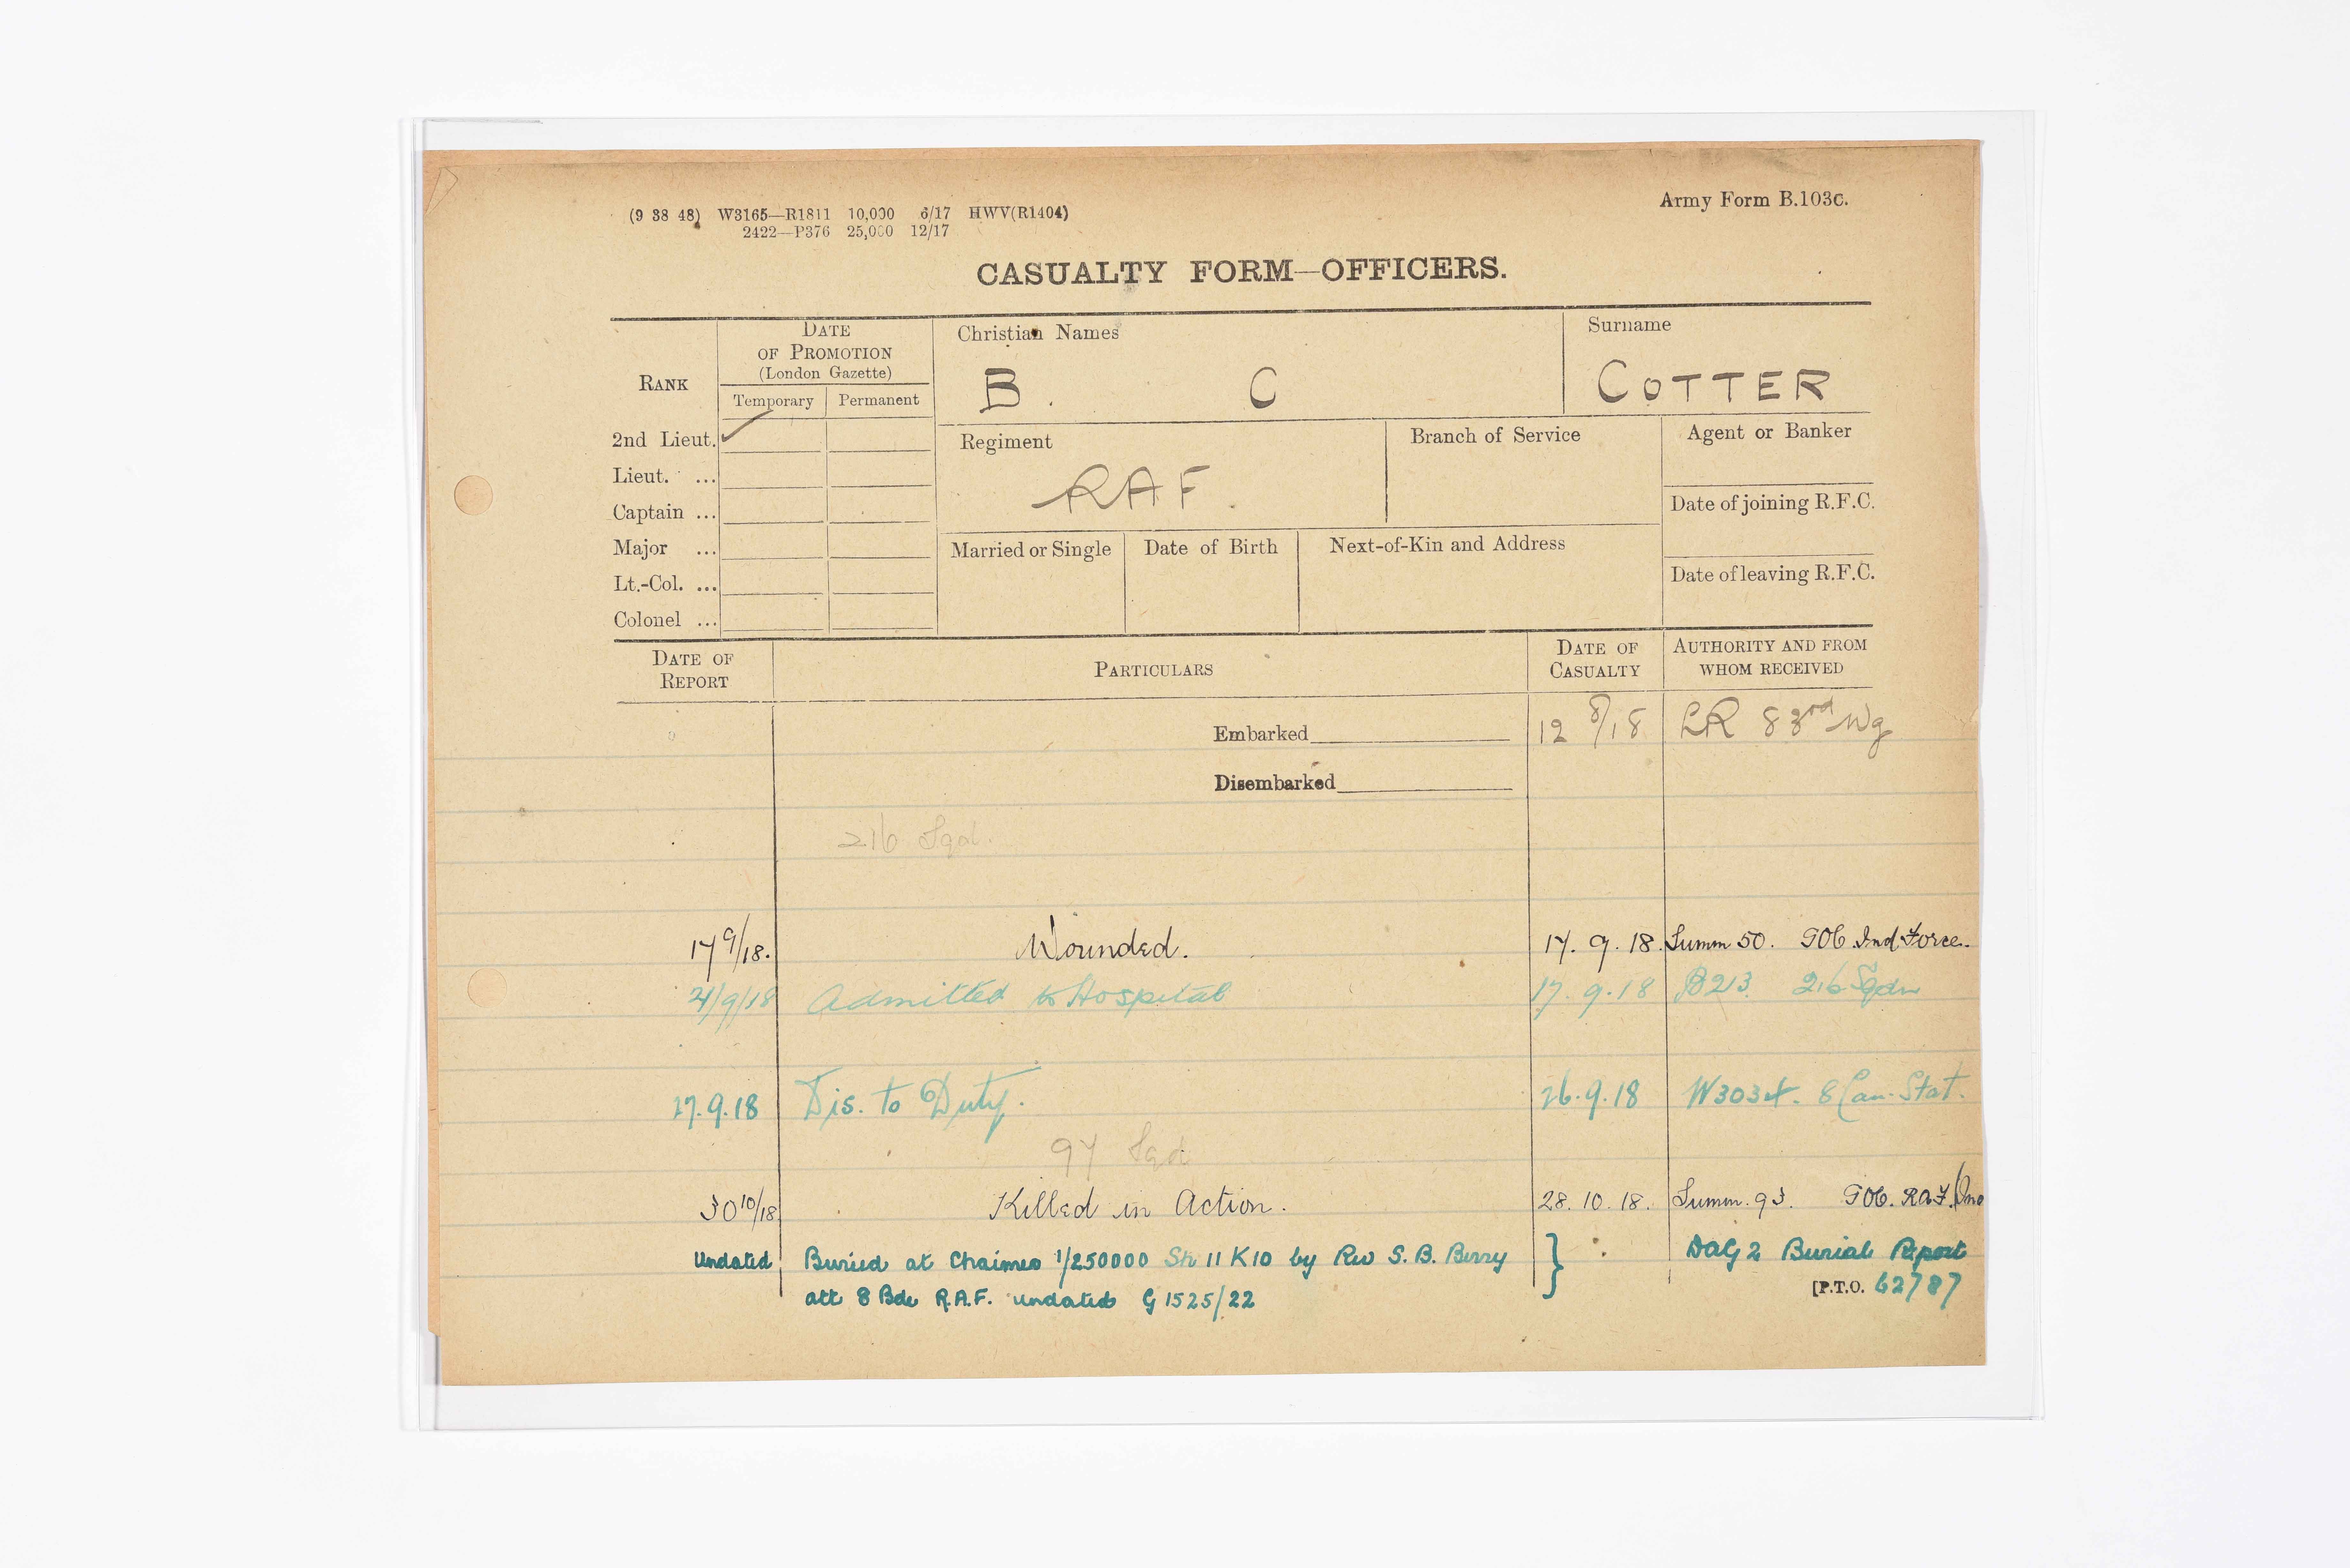 (9 38 48) W3165—R1811 10,000 6/17 HWV(R1404)
2422—P376 25,000 12/17
Army Form B.103c.
CASUALTY FORM—OFFICERS.
RANK
DATE OF PROMOTION (London Gazette)
Temporary Permanent
Christian Names
B. C
Surname
COTTER
2nd Lieut. ✓
Lieut. ...
Captain ...
Major ...
Lt.-Col. ...
Colonel ...
Regiment
RAF.
Branch of Service
Agent or Banker
Date of joining R.F.C.
Married or Single
Date of Birth
Next-of-Kin and Address
Date of leaving R.F.C.
DATE OF REPORT
PARTICULARS
DATE OF CASUALTY
AUTHORITY AND FROM WHOM RECEIVED
Embarked 12 8/18 LR 83rd Wg
Disembarked
216 Sqd.
17 9/18. Wounded. 17. 9. 18. Summ 50. GOC Ind Force.
21/9/18 Admitted to Hospital 17. 9. 18 B213 216 Sqdn
27.9.18 Dis. to Duty. 26.9.18 W3034. 8 Can. Stat.
97 Sqd
30 10/18 Killed in Action. 28. 10. 18. Summ. 93. GOC. RAF.
Undated Buried at Chaimes 1/250000 Sh 11 K10 by Rev S. B. Berry } DAG 2 Burial Report
att 8 Bde R.A.F. undated G 1525/22
[P.T.O. 62787